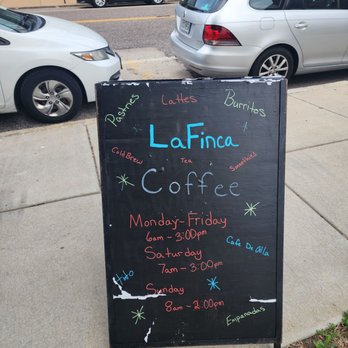 Pastries
Lattes
Burritos
LaFinca
Cold Brew
Tea
Smoothies
Coffee
Monday-Friday
6am-3:00pm
Cafe De Olla
Saturday
7am-3:00pm
Sunday
8am-2:00pm
Empanadas